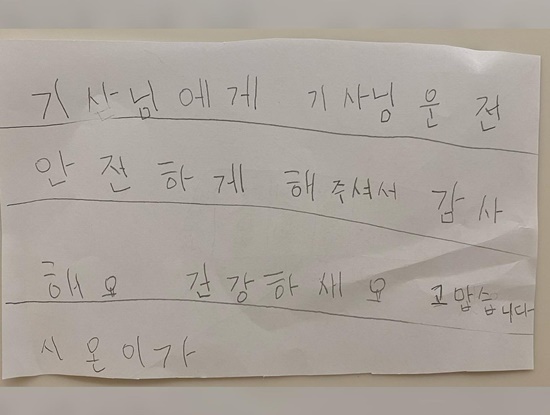 기산님에게 기사님 운전
안전하게 해주셔서 감사
해요 건강하새요 고맙습니다
시온이가